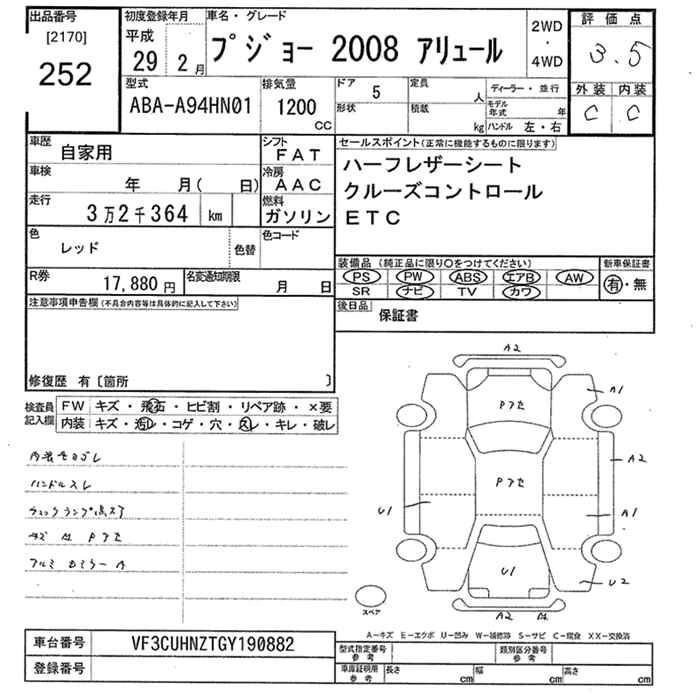 出品番号 初度登録年月 車名・グレード 2WD 評価点
[2170] 平成 プジョー 2008 アリュール ・ 3.5
252 29 2月 4WD 外装 内装
型式 排気量 ドア 定員 ディーラー・並行 C C
ABA-A94HN01 1200 5 人 モデル年式 年
cc 形状 積載 kg ハンドル 左・右
車歴 シフト セールスポイント(正常に機能するものに限ります)
自家用 FAT ハーフレザーシート
車検 冷房 クルーズコントロール
年 月( 日) AAC ETC
走行 燃料
3万2千364 km ガソリン
色 色替 色コード
レッド 装備品(純正品に限り○をつけてください) 新車保証書
R券 名変通知期限 PS PW ABS エアB AW 有・無
17,880円 月 日 SR ナビ TV カワ
注意事項申告欄(不具合内容等は具体的に記入して下さい) 後日品
保証書
修復歴 有〔箇所 〕
検査員 FW キズ・飛石・ヒビ割・リペア跡・×要
記入欄 内装 キズ・汚レ・コゲ・穴・スレ・キレ・破レ
A2
A1
Pアセ
ハンドルスレ
A2
Pアセ
U1 A1
チェックランプ点灯
キズ A1 Pアセ
U1 U2
スペア
A2
A…キズ E…エクボ U…凹み W…補修跡 S…サビ C…腐食 XX…交換済
車台番号 VF3CUHNZTGY190882 型式指定番号 参考 類別区分番号 参考
登録番号 車庫証明用 参考 長さ cm 幅 cm 高さ cm